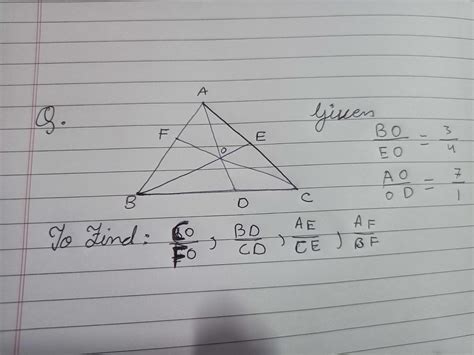 Q.
A
F
E
O
B
D
C
Given
BO/EO = 3/4
AO/OD = 7/1
To Find: CO/FO, BD/CD, AE/CE, AF/BF